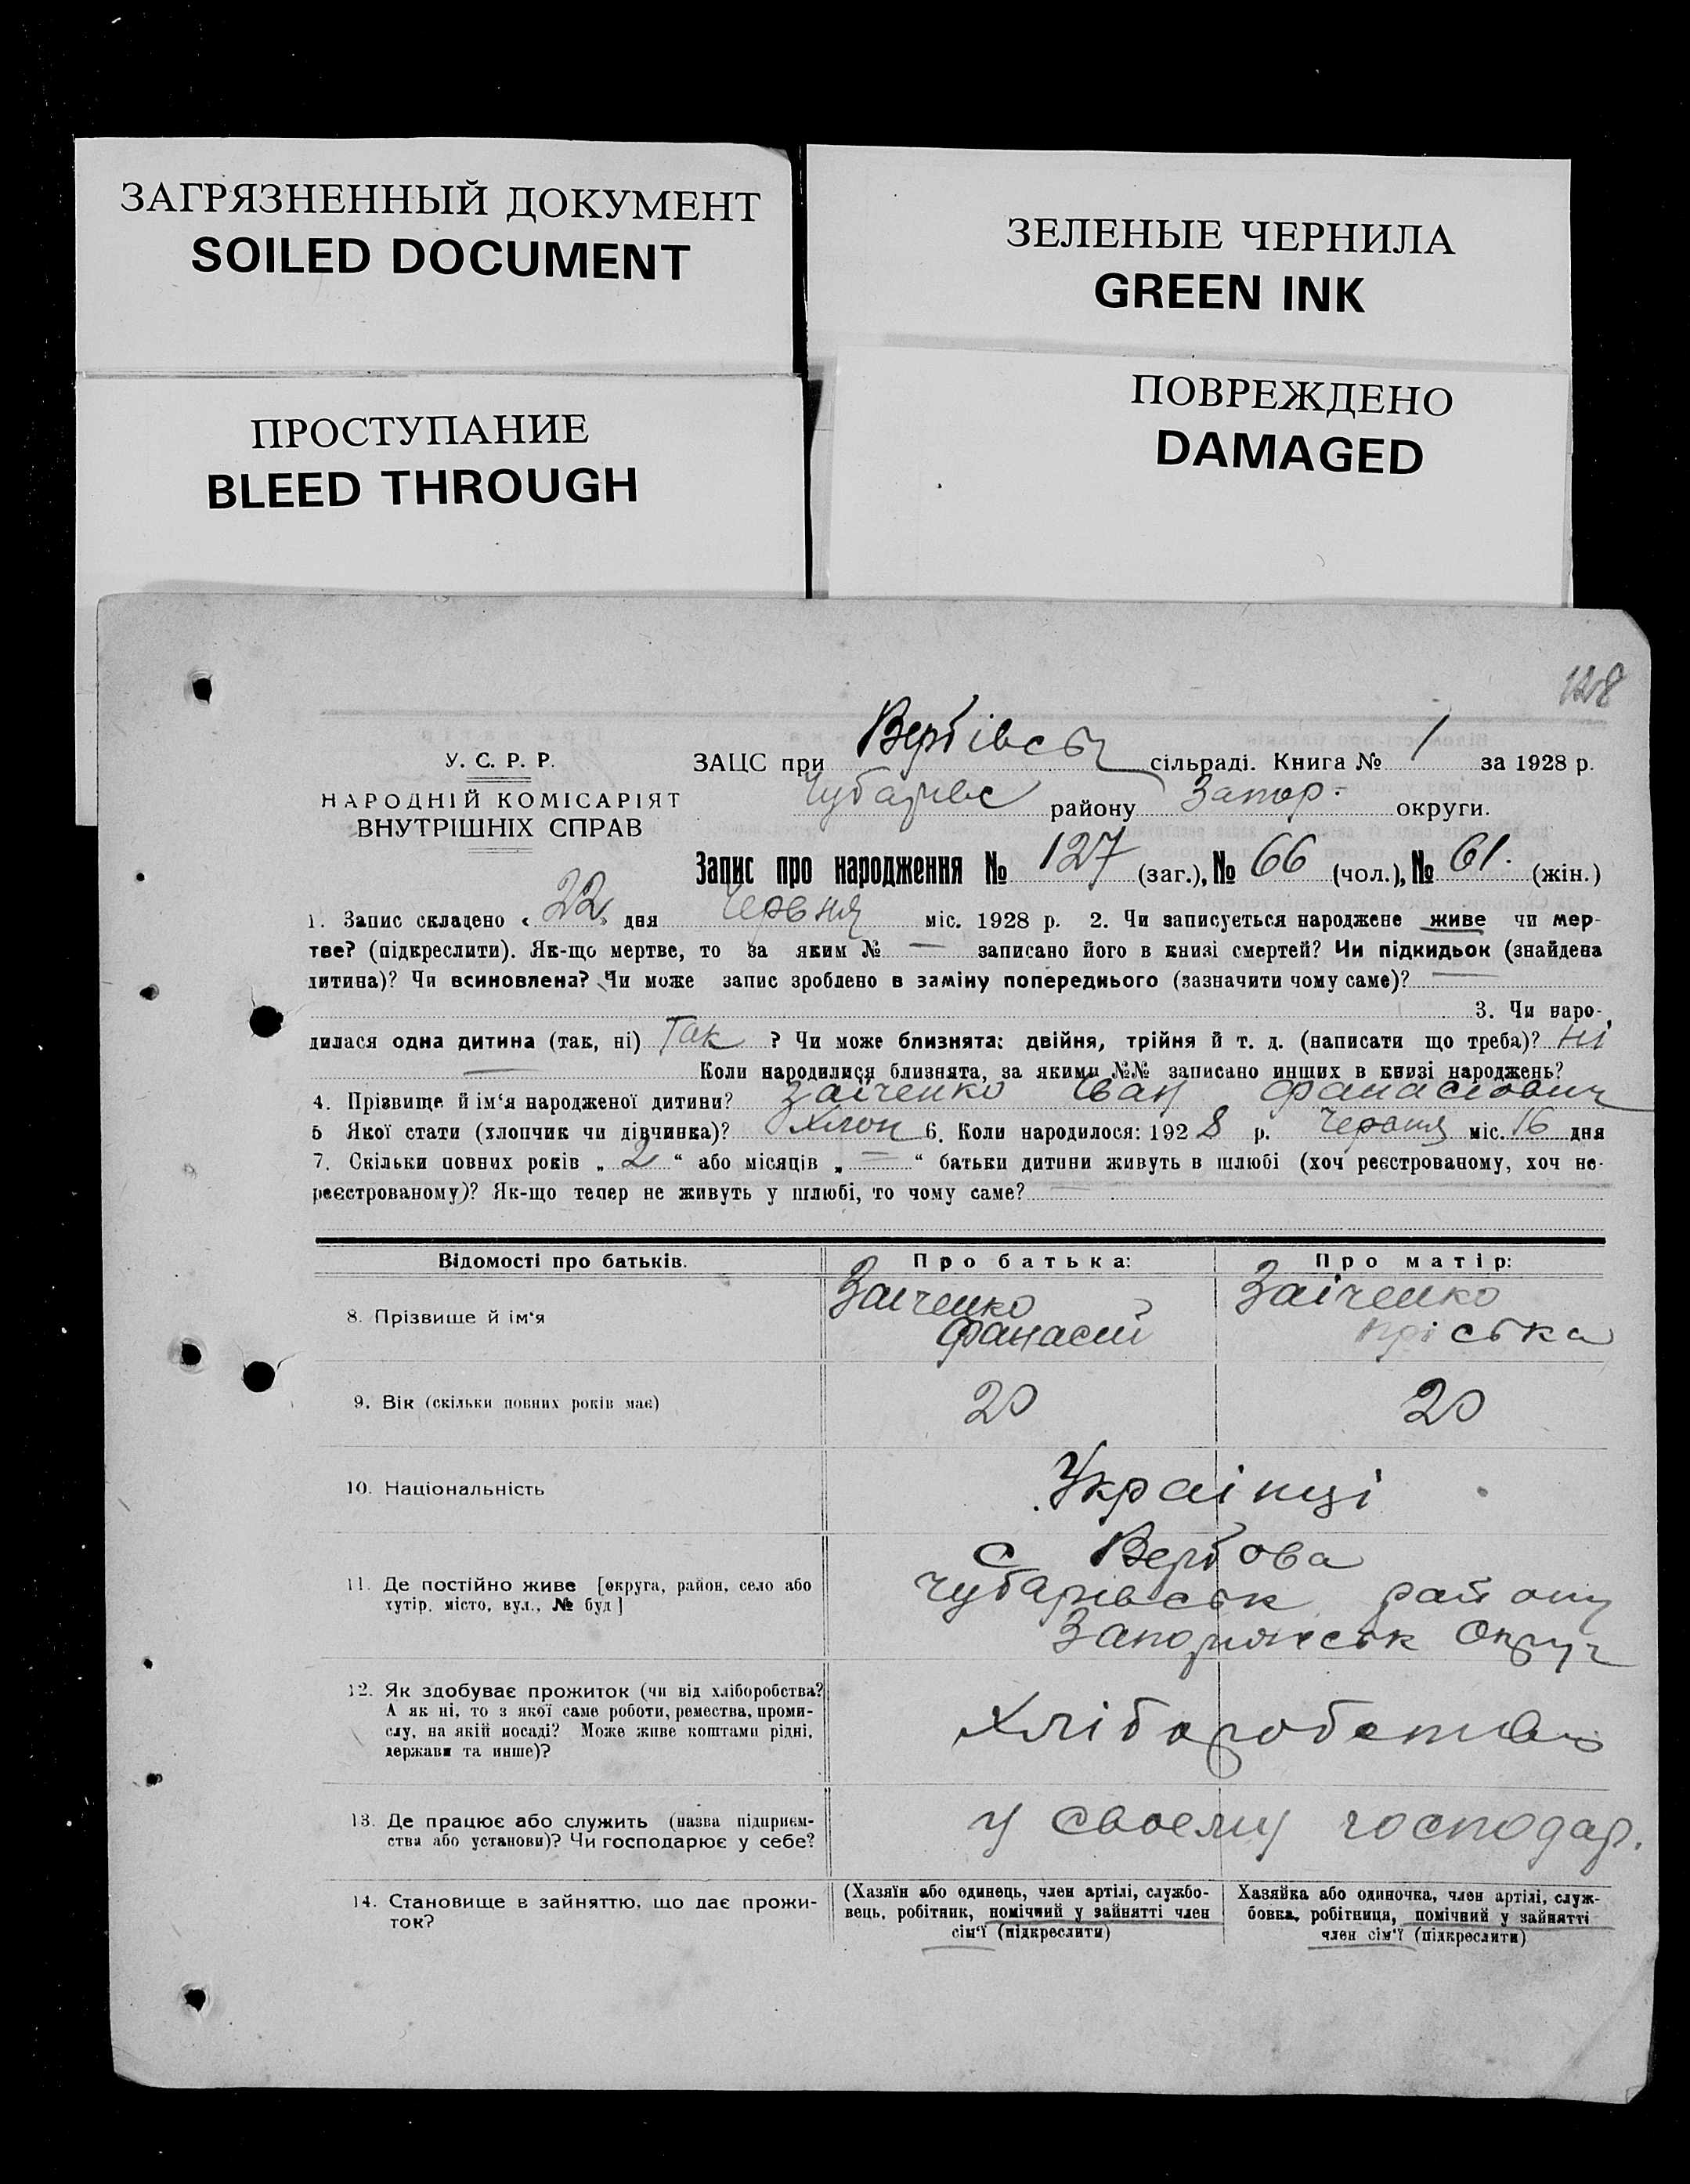 ЗАГРЯЗНЕННЫЙ ДОКУМЕНТ
SOILED DOCUMENT
ЗЕЛЕНЫЕ ЧЕРНИЛА
GREEN INK
ПРОСТУПАНИЕ
BLEED THROUGH
ПОВРЕЖДЕНО
DAMAGED
128
У. С. Р. Р.
НАРОДНІЙ КОМІСАРІЯТ
ВНУТРІШНІХ СПРАВ
ЗАЦС при Вербівськ сільраді. Книга № 1 за 1928 р.
Чубарівс району Запор. округи.
Запис про народження № 127 (заг.), № 66 (чол.), № 61. (жін.)
1. Запис складено « 22 » дня Червня міс. 1928 р. 2. Чи записується народжене живе чи мер-
тве? (підкреслити). Як-що мертве, то за яким № — записано його в книзі смертей? Чи підкидьок (знайдена
дитина)? Чи всиновлена? Чи може запис зроблено в заміну попереднього (зазначити чому саме)? —
3. Чи наро-
дилася одна дитина (так, ні) Так ? Чи може близнята: двійня, трійня й т. д. (написати що треба)? ні
— Коли народилися близнята, за якими №№ записано инших в книзі народжень?
4. Прізвище й ім‘я народженої дитини? Заіченко Іван Фанасіович
5 Якої стати (хлопчик чи дівчинка)? Хлоп 6. Коли народилося: 1928 р. Червня міс. 16 дня
7. Скільки повних років „ 2 “ або місяців „ — “ батьки дитини живуть в шлюбі (хоч реєстрованому, хоч не-
реєстрованому)? Як-що тепер не живуть у шлюбі, то чому саме? —
Відомості про батьків.
Про батька:
Про матір:
8. Прізвище й ім‘я
Заіченко
Фанасий
Заіченко
Пріська
9. Вік (скільки повних років має)
20
20
10. Національність
Украінці
11. Де постійно живе [округа, район, село або
хутір, місто, вул., № буд]
с Вербова
Чубарівськ району
Запоріжськ Округ
12. Як здобуває прожиток (чи від хліборобства?
А як ні, то з якої саме роботи, ремества, проми-
слу, на якій посаді? Може живе коштами рідні,
держави та инше)?
Хліборобство
13. Де працює або служить (назва підприєм-
ства або установи)? Чи господарює у себе?
у своему господар.
14. Становище в зайняттю, що дає прожи-
ток?
(Хазяїн або одинець, член артілі, службо-
вець, робітник, помічний у зайнятті член
сім‘ї (підкреслити)
Хазяйка або одиночка, член артілі, служ-
бовка, робітниця, помічний у зайнятті
член сім‘ї (підкреслити)